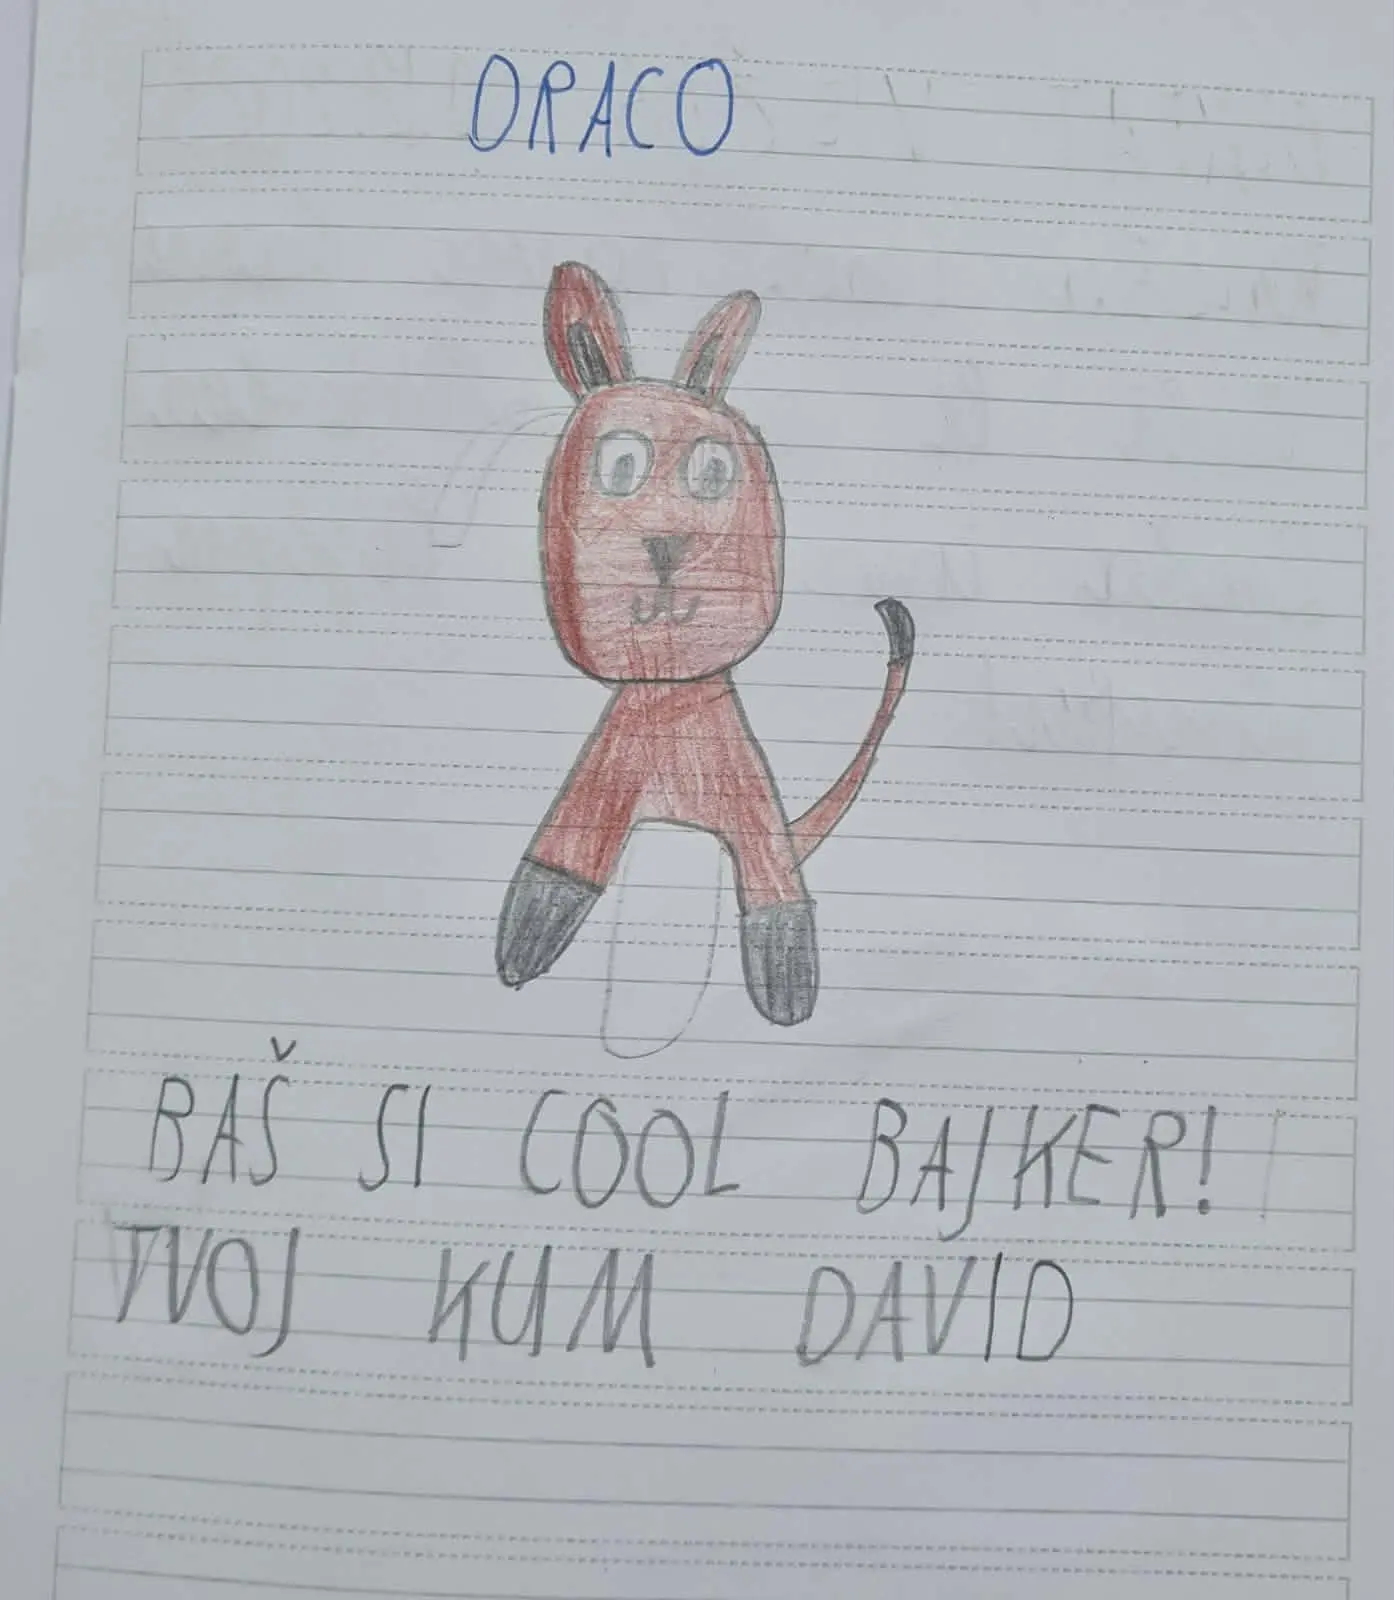 DRACO
BAŠ SI COOL BAJKER!
TVOJ KUM DAVID